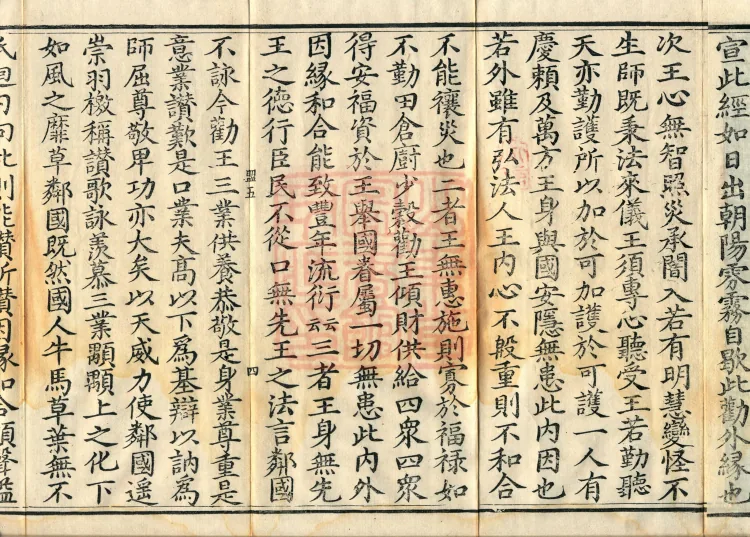 宣此經如日出朝陽雰霧自歇此勸外緣也
次王心無智照災承闇入若有明慧變怪不
生師既秉法來儀王須專心聽受王若勤聽
天亦勤護所以加於可加護於可護一人有
慶賴及萬方王身與國安隱無患此內因也
若外雖有弘法人王內心不般重則不和合
不能禳災也二者王無惠施則寡於福祿如
不勤田倉廚少穀勸王傾財供給四衆四衆
得安福資於王舉國眷屬一切無患此內外
因緣和合能致豐年流衍云云三者王身無先
王之德行臣民不從口無先王之法言鄰國
盟五 四
不詠今勸王三業供養恭敬是身業尊重是
意業讚歎是口業夫高以下爲基辯以訥爲
師屈尊敬卑功亦大矣以天威力使鄰國遙
崇羽檄稱讚歌詠羨慕三業顒顒上之化下
如風之靡草鄰國既然國人牛馬草葉無不